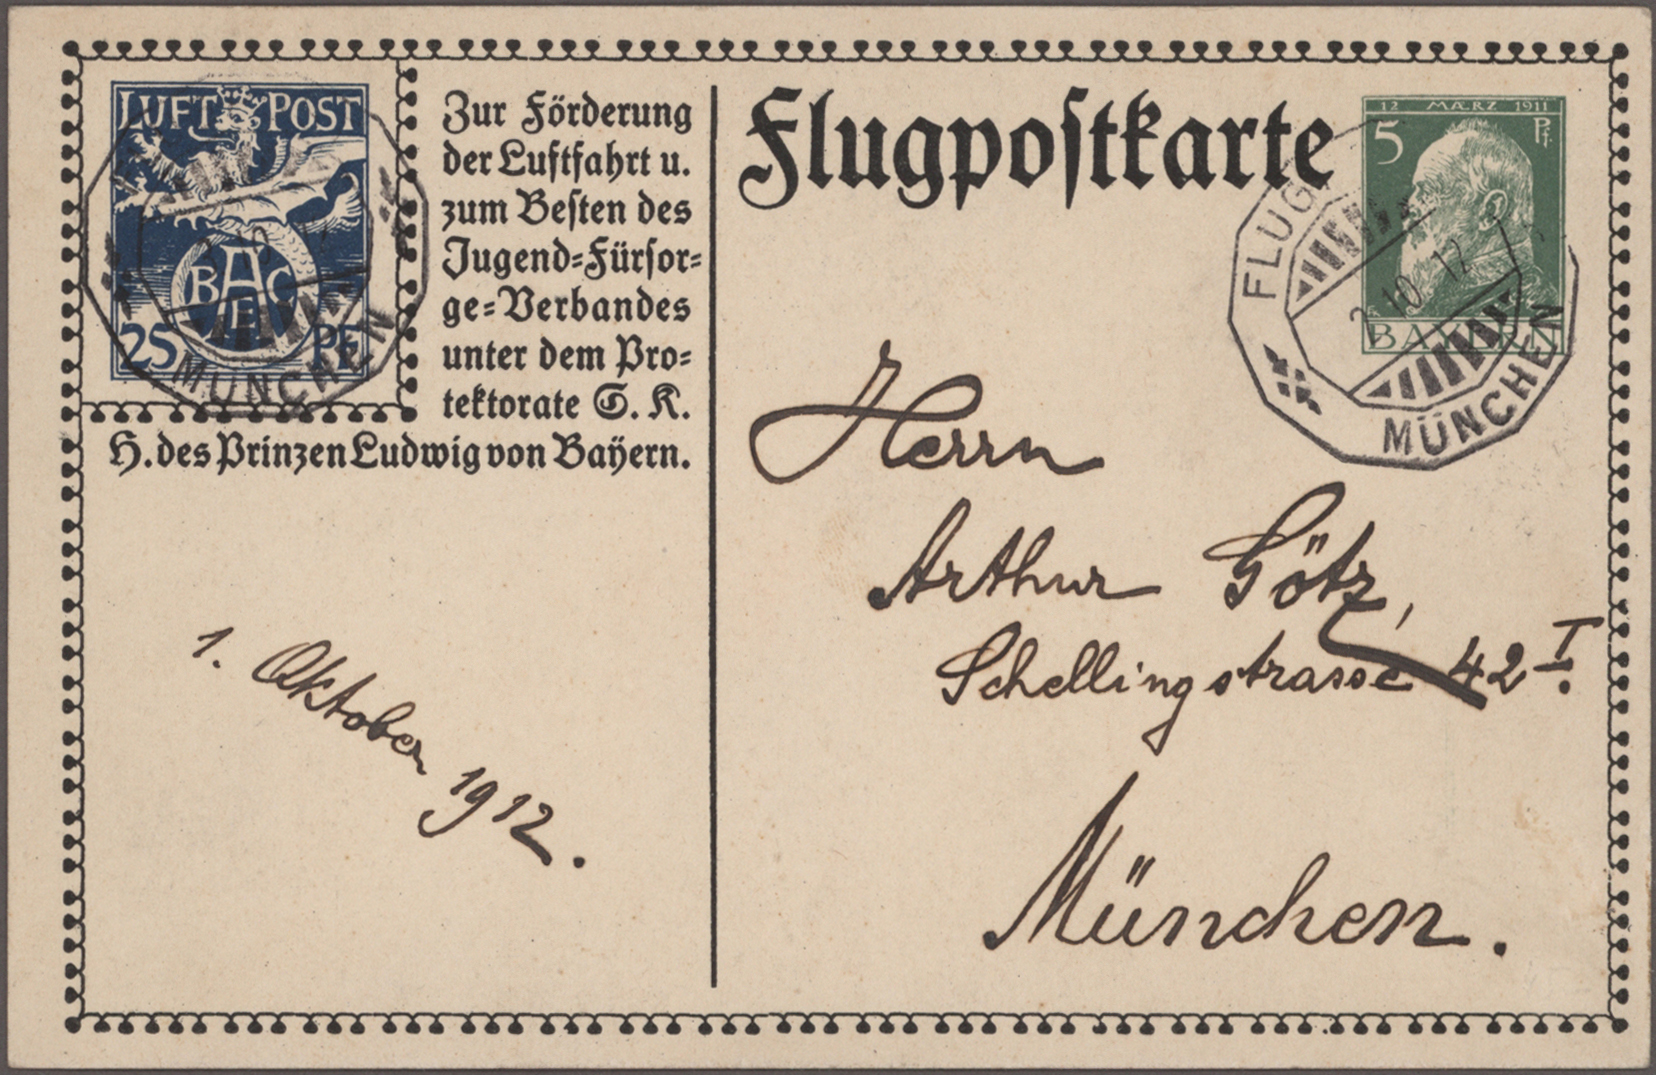 LUFT POST
BAEC
25 PF
MÜNCHEN
Zur Förderung
der Luftfahrt u.
zum Besten des
Jugend=Fürsor=
ge=Verbandes
unter dem Pro=
tektorate S. K.
H. des Prinzen Ludwig von Bayern.
Flugpostkarte
12 MÆRZ 1911
5 Pf.
BAYERN
FLUG
10 12
MÜNCHEN
Herrn
Arthur Götz,
Schellingstrasse 42 I.
München.
1. Oktober 1912.